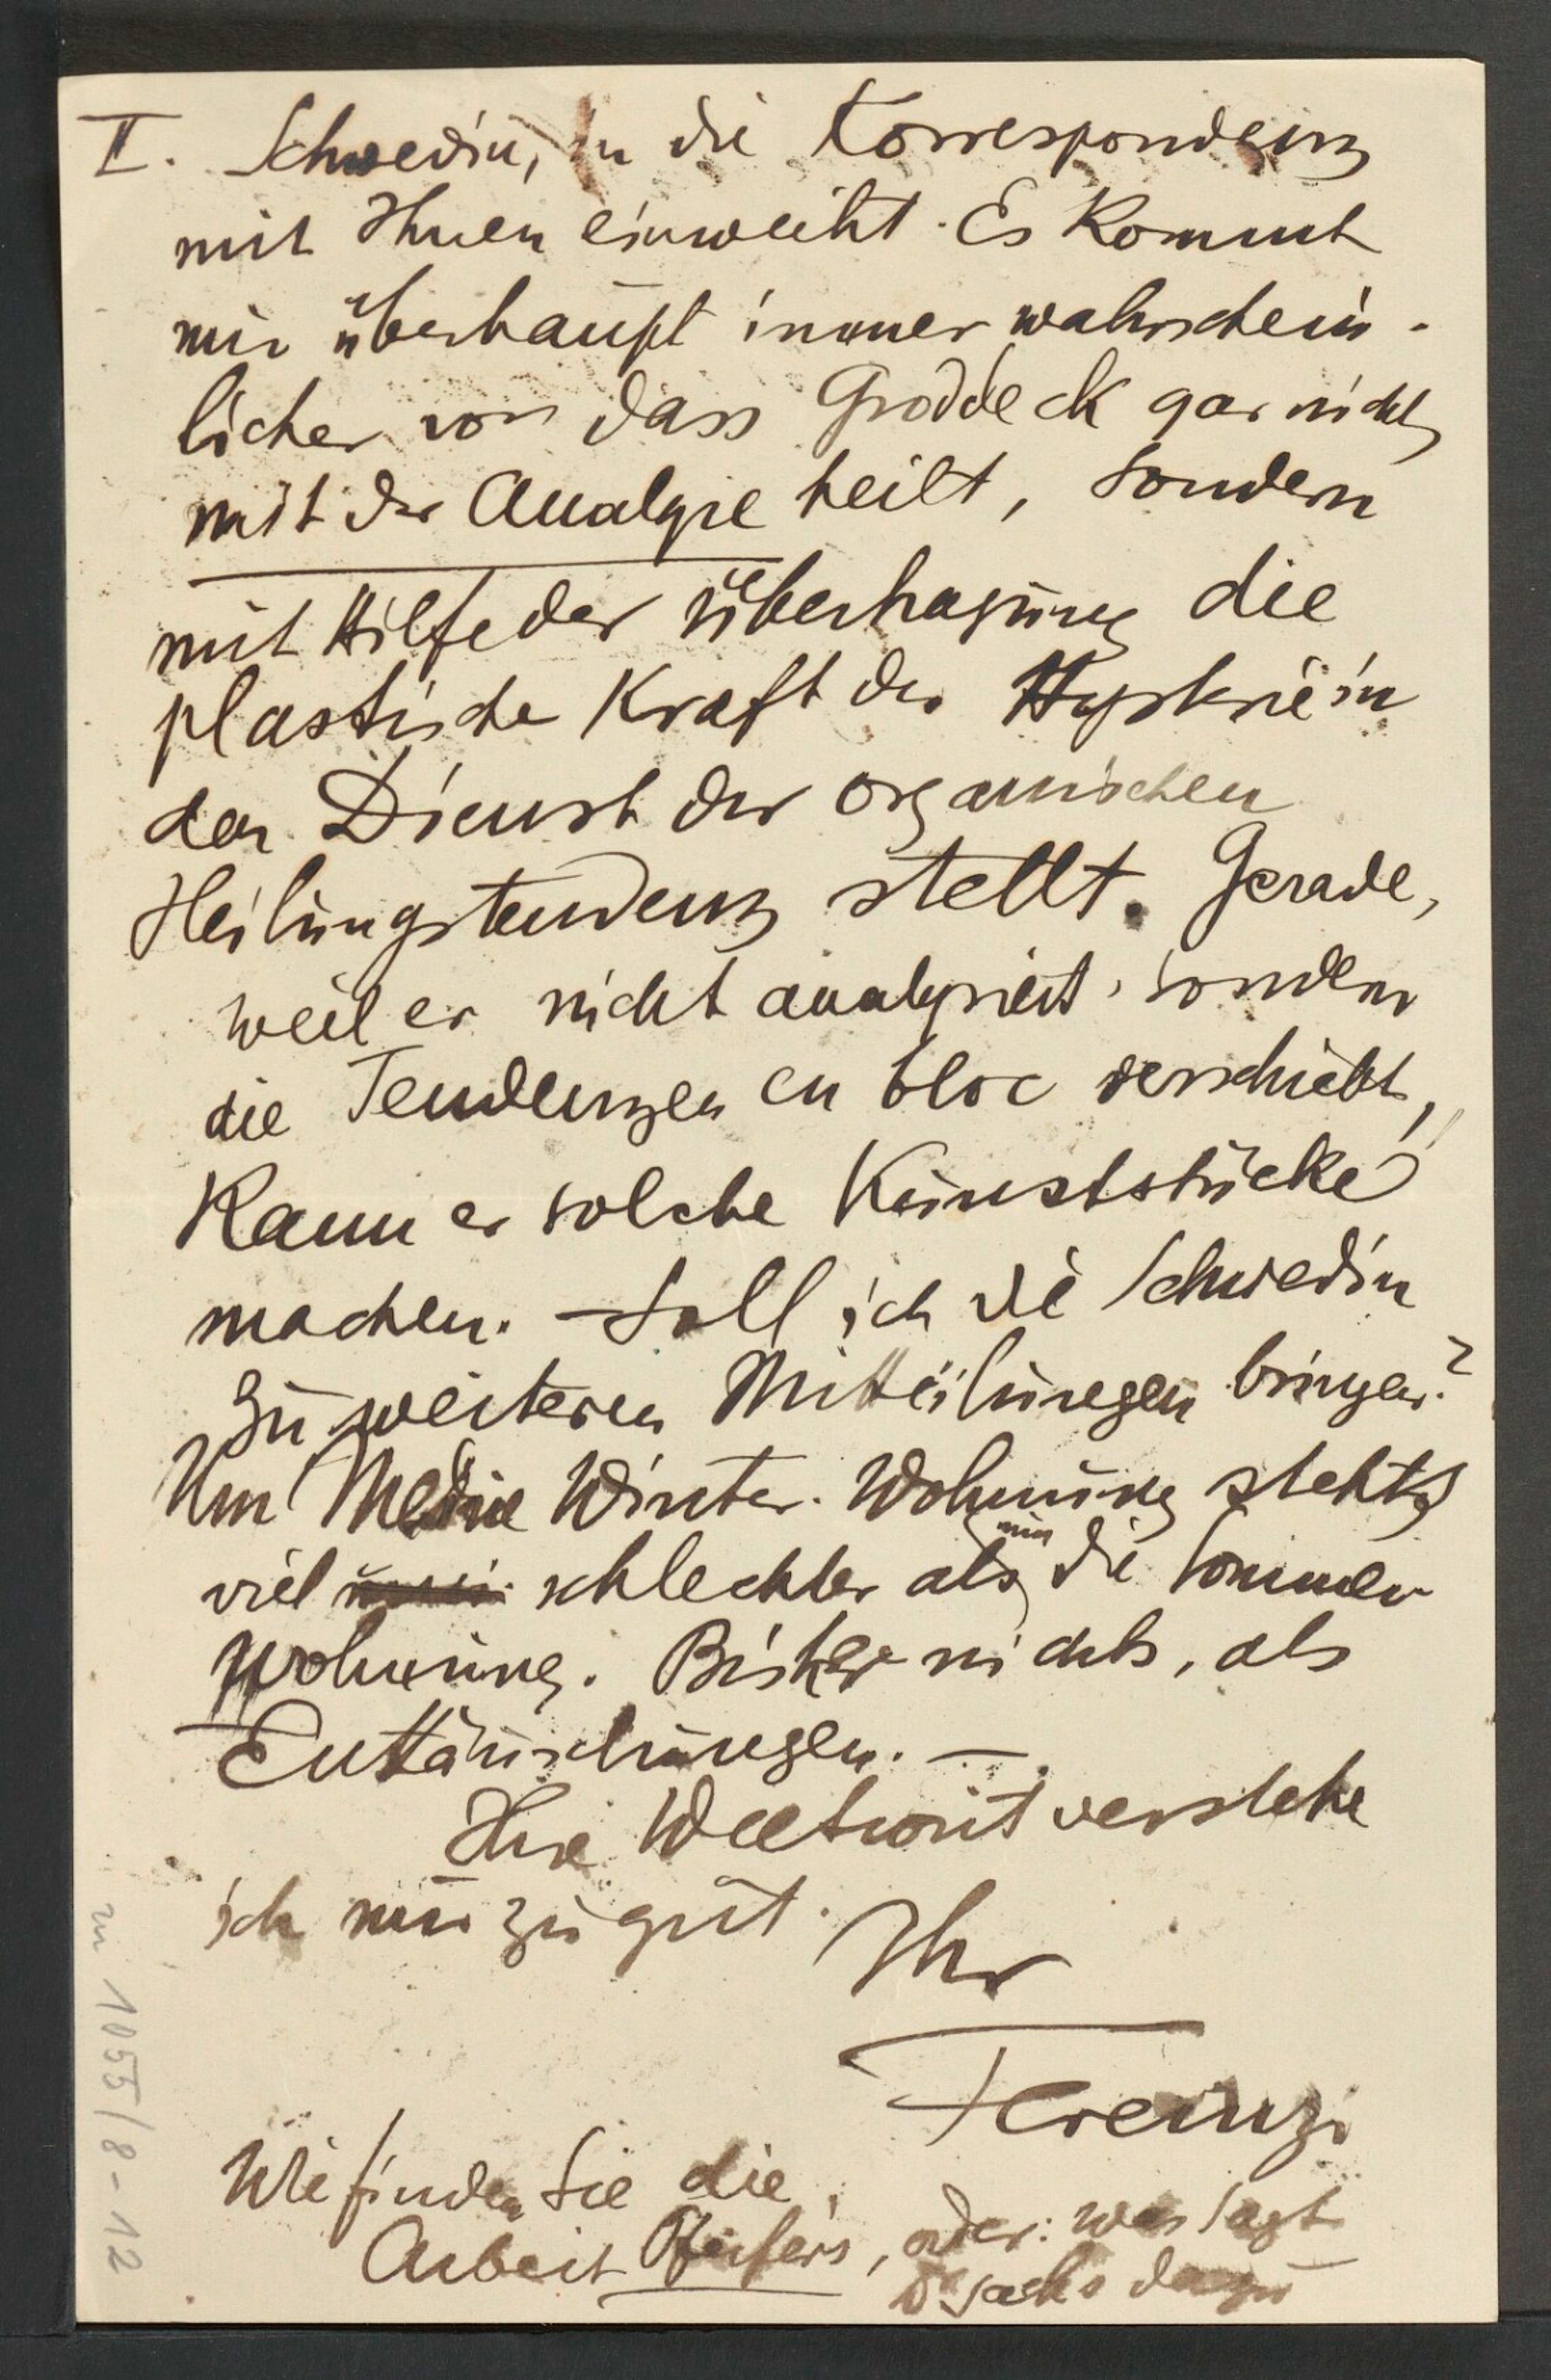 II. Schwedin, in die Korrespondenz
mit Ihnen einweiht. Es kommt
mir überhaupt immer wahrschein-
licher vor dass Groddeck gar nicht
mit der Analyse heilt, sondern
mit Hilfe der Übertragung die
plastische Kraft der Hysterie in
den Dienst der organischen
Heilungstendenz stellt. Gerade,
weil er nicht analysiert, sondern
die Tendenzen en bloc verschiebt,
kann er solche Kunststücke
machen. – Soll ich die Schwedin
zu weiteren Mitteilungen bringen?
Um Meine Winter-Wohnung steht's
viel schlechter als um die Sommer
wohnung. Bisher nichts, als
Enttäuschungen. –
Ihr Weltwort verstehe
ich nur zu gut. Ihr
Ferenczi
Wie finden Sie die
Arbeit Pfeifers, oder: was sagt
Dr Sachs dazu
zu 1055/8-12